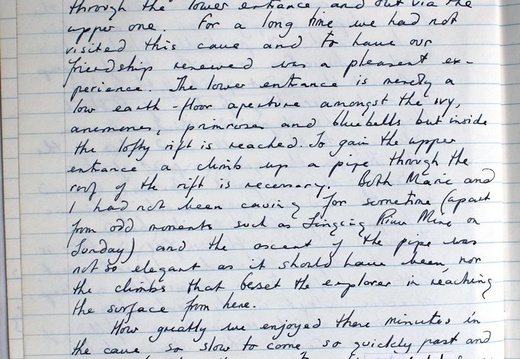 through the lower entrance, and out via the
upper one. For a long time we had not
visited this cave and to have our
friendship renewed was a pleasant ex-
perience. The lower entrance is merely a
low earth-floor aperture amongst the ivy,
anemones, primroses and bluebells but inside
the lofty rift is reached. To gain the upper
entrance a climb up a pipe through the
roof of the rift is necessary. Both Marie and
I had not been caving for sometime (apart
from odd moments such as Singing River Mine on
Sunday) and the ascent of the pipe was
not so elegant as it should have been nor
the climbs that beset the explorer in reaching
the surface from here.
How greatly we enjoyed these minutes in
the cave so slow to come so quickly past and